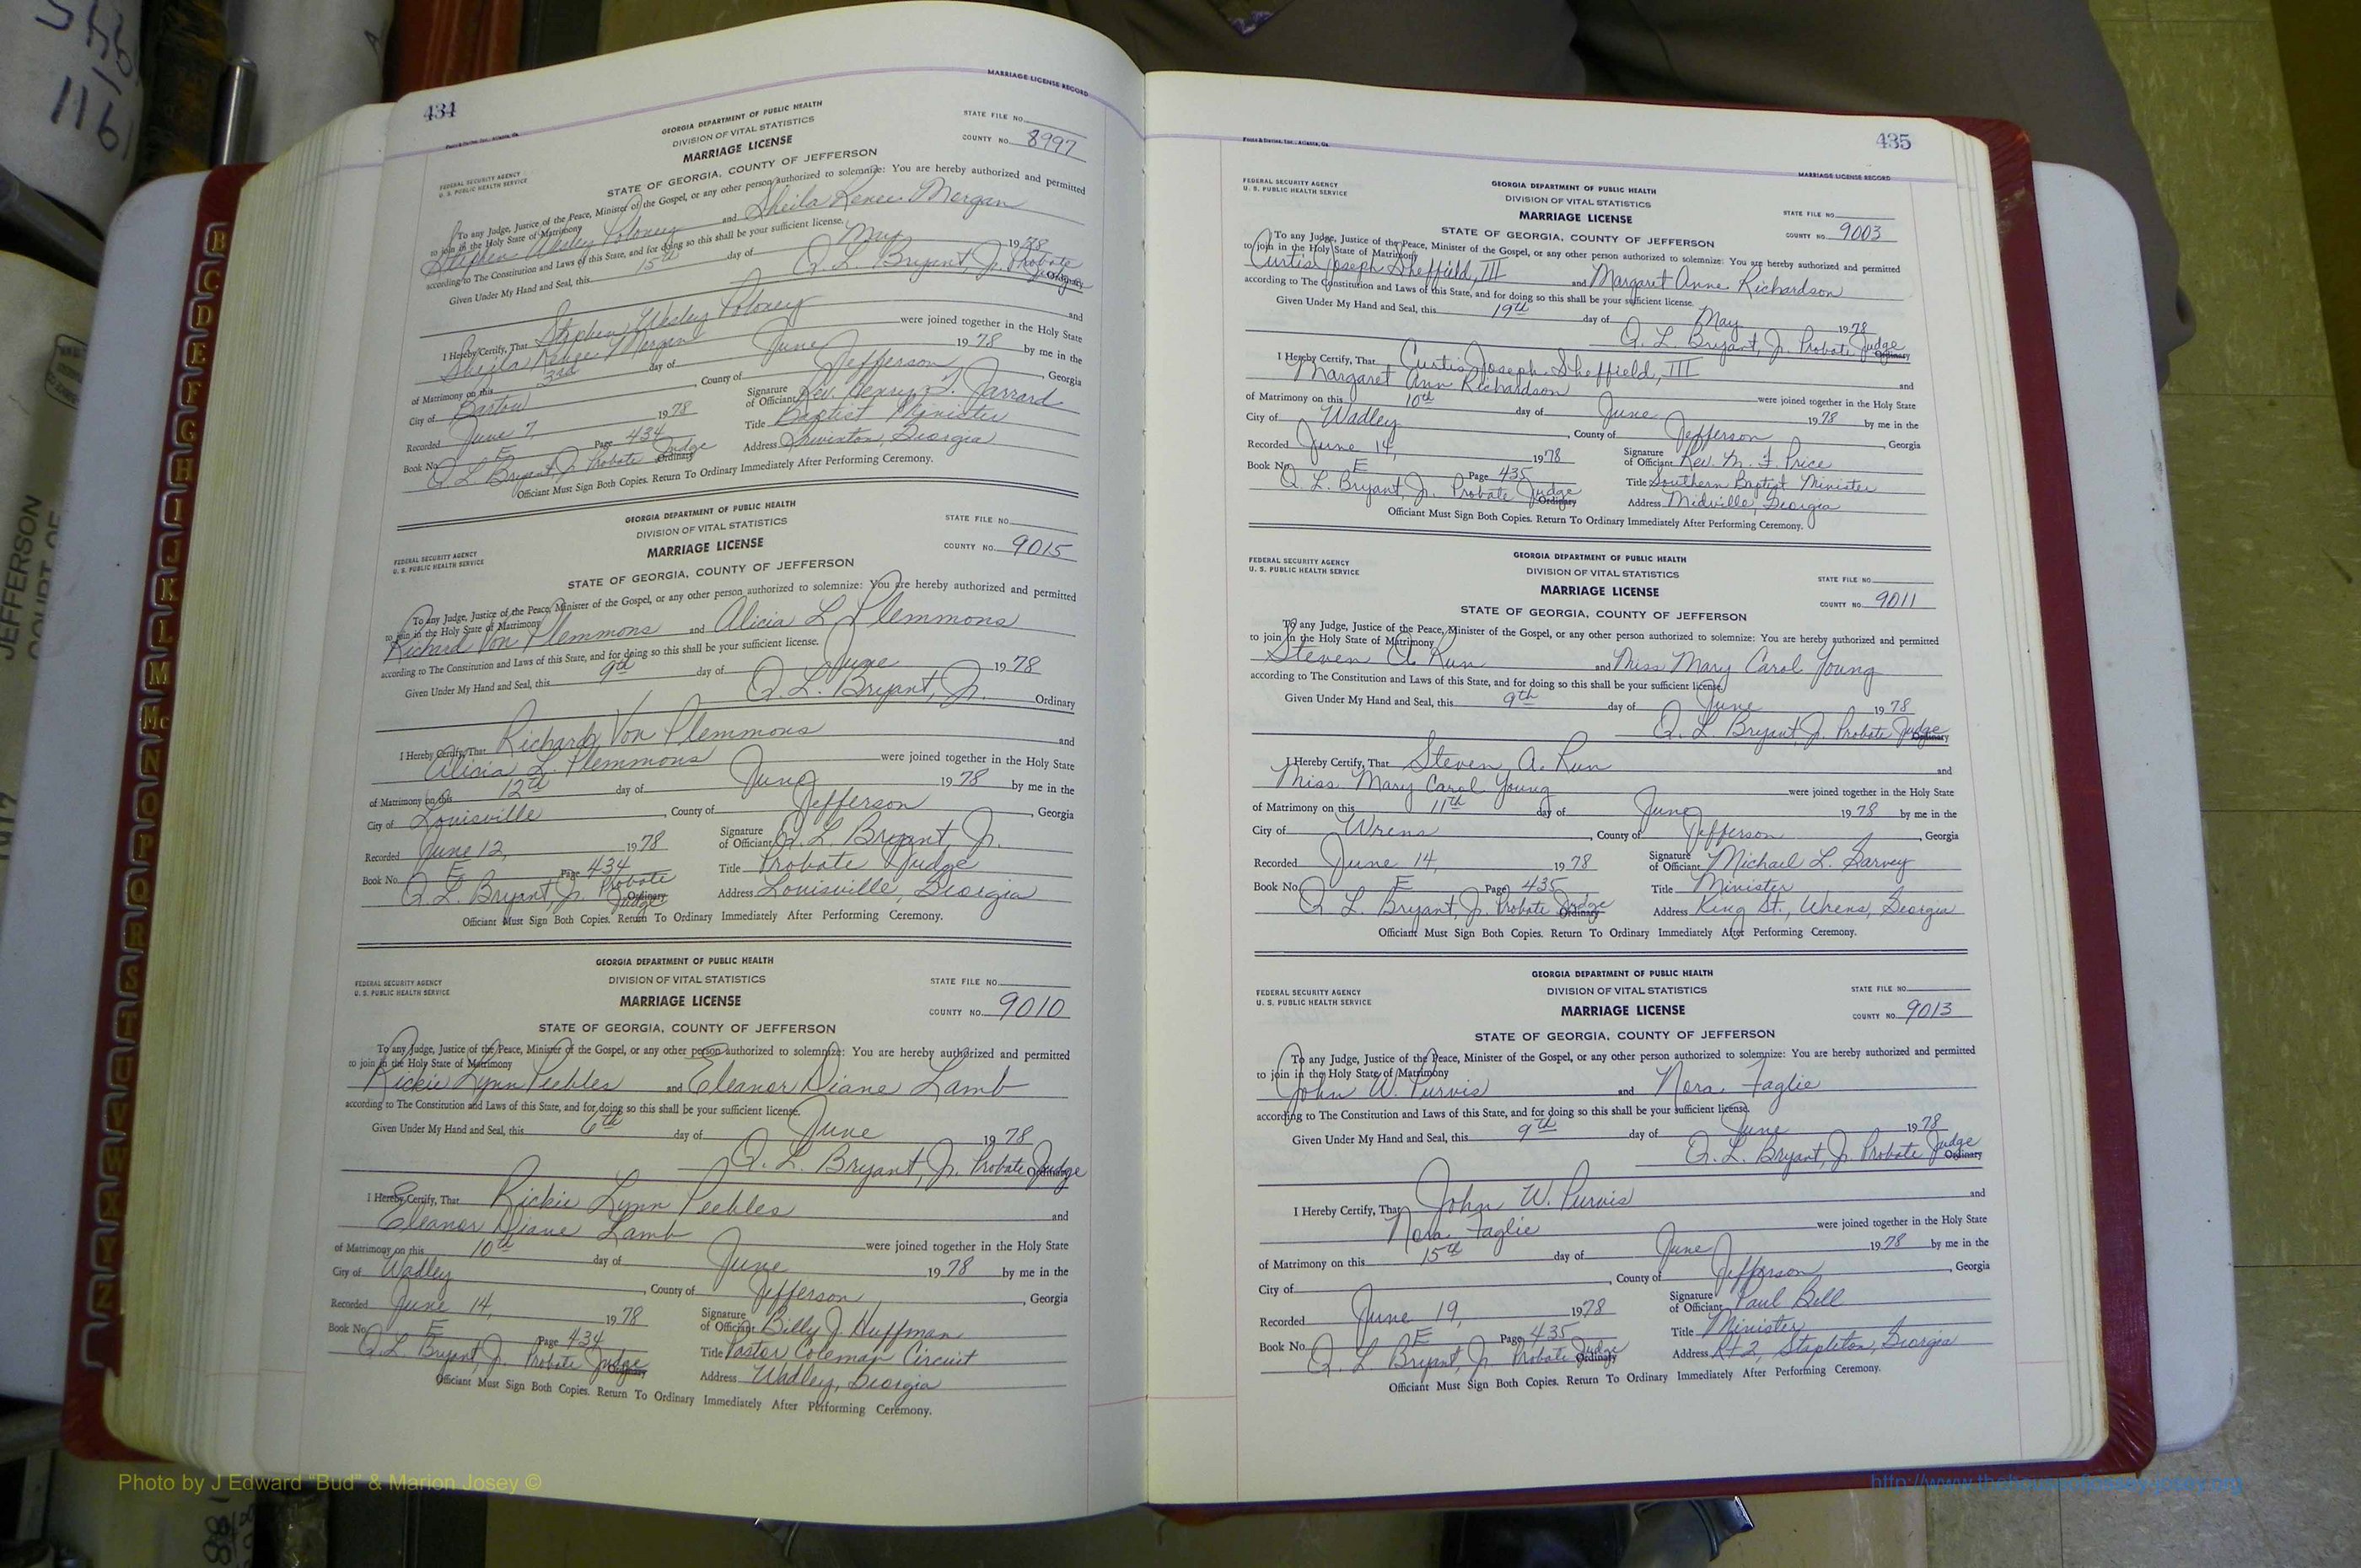 434
MARRIAGE LICENSE RECORD
GEORGIA DEPARTMENT OF PUBLIC HEALTH
DIVISION OF VITAL STATISTICS
MARRIAGE LICENSE
STATE FILE NO.
COUNTY NO. 8997
FEDERAL SECURITY AGENCY
U. S. PUBLIC HEALTH SERVICE
STATE OF GEORGIA, COUNTY OF JEFFERSON
To any Judge, Justice of the Peace, Minister of the Gospel, or any other person authorized to solemnize: You are hereby authorized and permitted
to join in the Holy State of Matrimony
Stephen Wesley Poloney and Sheila Renee Morgan
according to The Constitution and Laws of this State, and for doing so this shall be your sufficient license.
Given Under My Hand and Seal, this 15th day of May 1978
Q. L. Bryant, Jr. Probate Judge Ordinary
I Hereby Certify, That Stephen Wesley Poloney and
Sheila Renee Morgan were joined together in the Holy State
of Matrimony on this 3rd day of June 1978 by me in the
City of Bartow, County of Jefferson, Georgia
Recorded June 7, 1978 Signature of Officiant Rev. Henry T. Jarrard
Book No. E Page 434 Title Baptist Minister
Q. L. Bryant, Jr. Probate Judge Ordinary Address Swinton, Georgia
Officiant Must Sign Both Copies. Return To Ordinary Immediately After Performing Ceremony.
GEORGIA DEPARTMENT OF PUBLIC HEALTH
DIVISION OF VITAL STATISTICS
MARRIAGE LICENSE
STATE FILE NO.
COUNTY NO. 9015
FEDERAL SECURITY AGENCY
U. S. PUBLIC HEALTH SERVICE
STATE OF GEORGIA, COUNTY OF JEFFERSON
To any Judge, Justice of the Peace, Minister of the Gospel, or any other person authorized to solemnize: You are hereby authorized and permitted
to join in the Holy State of Matrimony
Richard Von Plemmons and Alicia L. Plemmons
according to The Constitution and Laws of this State, and for doing so this shall be your sufficient license.
Given Under My Hand and Seal, this 9th day of June 1978
Q. L. Bryant, Jr. Ordinary
I Hereby Certify, That Richard Von Plemmons and
Alicia L. Plemmons were joined together in the Holy State
of Matrimony on this 12th day of June 1978 by me in the
City of Louisville, County of Jefferson, Georgia
Recorded June 12, 1978 Signature of Officiant Q. L. Bryant, Jr.
Book No. E Page 434 Title Probate Judge
Q. L. Bryant, Jr. Probate Judge Ordinary Address Louisville, Georgia
Officiant Must Sign Both Copies. Return To Ordinary Immediately After Performing Ceremony.
GEORGIA DEPARTMENT OF PUBLIC HEALTH
DIVISION OF VITAL STATISTICS
MARRIAGE LICENSE
STATE FILE NO.
COUNTY NO. 9010
FEDERAL SECURITY AGENCY
U. S. PUBLIC HEALTH SERVICE
STATE OF GEORGIA, COUNTY OF JEFFERSON
To any Judge, Justice of the Peace, Minister of the Gospel, or any other person authorized to solemnize: You are hereby authorized and permitted
to join in the Holy State of Matrimony
Rickie Lynn Peebles and Eleanor Diane Lamb
according to The Constitution and Laws of this State, and for doing so this shall be your sufficient license.
Given Under My Hand and Seal, this 6th day of June 1978
Q. L. Bryant, Jr. Probate Judge Ordinary
I Hereby Certify, That Rickie Lynn Peebles and
Eleanor Diane Lamb were joined together in the Holy State
of Matrimony on this 10th day of June 1978 by me in the
City of Wadley, County of Jefferson, Georgia
Recorded June 14, 1978 Signature of Officiant Billy J. Huffman
Book No. E Page 434 Title Pastor Coleman Circuit
Q. L. Bryant, Jr. Probate Judge Ordinary Address Wadley, Georgia
Officiant Must Sign Both Copies. Return To Ordinary Immediately After Performing Ceremony.
435
MARRIAGE LICENSE RECORD
GEORGIA DEPARTMENT OF PUBLIC HEALTH
DIVISION OF VITAL STATISTICS
MARRIAGE LICENSE
STATE FILE NO.
COUNTY NO. 9003
FEDERAL SECURITY AGENCY
U. S. PUBLIC HEALTH SERVICE
STATE OF GEORGIA, COUNTY OF JEFFERSON
To any Judge, Justice of the Peace, Minister of the Gospel, or any other person authorized to solemnize: You are hereby authorized and permitted
to join in the Holy State of Matrimony
Curtis Joseph Sheffield, III and Margaret Anne Richardson
according to The Constitution and Laws of this State, and for doing so this shall be your sufficient license.
Given Under My Hand and Seal, this 19th day of May 1978
Q. L. Bryant, Jr. Probate Judge Ordinary
I Hereby Certify, That Curtis Joseph Sheffield, III and
Margaret Ann Richardson were joined together in the Holy State
of Matrimony on this 10th day of June 1978 by me in the
City of Wadley, County of Jefferson, Georgia
Recorded June 14, 1978 Signature of Officiant Rev. M. F. Price
Book No. E Page 435 Title Southern Baptist Minister
Q. L. Bryant, Jr. Probate Judge Ordinary Address Midville, Georgia
Officiant Must Sign Both Copies. Return To Ordinary Immediately After Performing Ceremony.
GEORGIA DEPARTMENT OF PUBLIC HEALTH
DIVISION OF VITAL STATISTICS
MARRIAGE LICENSE
STATE FILE NO.
COUNTY NO. 9011
FEDERAL SECURITY AGENCY
U. S. PUBLIC HEALTH SERVICE
STATE OF GEORGIA, COUNTY OF JEFFERSON
To any Judge, Justice of the Peace, Minister of the Gospel, or any other person authorized to solemnize: You are hereby authorized and permitted
to join in the Holy State of Matrimony
Steven A. Run and Miss Mary Carol Young
according to The Constitution and Laws of this State, and for doing so this shall be your sufficient license.
Given Under My Hand and Seal, this 9th day of June 1978
Q. L. Bryant, Jr. Probate Judge Ordinary
I Hereby Certify, That Steven A. Run and
Miss Mary Carol Young were joined together in the Holy State
of Matrimony on this 11th day of June 1978 by me in the
City of Wrens, County of Jefferson, Georgia
Recorded June 14, 1978 Signature of Officiant Michael L. Garvey
Book No. E Page 435 Title Minister
Q. L. Bryant, Jr. Probate Judge Ordinary Address King St., Wrens, Georgia
Officiant Must Sign Both Copies. Return To Ordinary Immediately After Performing Ceremony.
GEORGIA DEPARTMENT OF PUBLIC HEALTH
DIVISION OF VITAL STATISTICS
MARRIAGE LICENSE
STATE FILE NO.
COUNTY NO. 9013
FEDERAL SECURITY AGENCY
U. S. PUBLIC HEALTH SERVICE
STATE OF GEORGIA, COUNTY OF JEFFERSON
To any Judge, Justice of the Peace, Minister of the Gospel, or any other person authorized to solemnize: You are hereby authorized and permitted
to join in the Holy State of Matrimony
John W. Purvis and Nora Faglie
according to The Constitution and Laws of this State, and for doing so this shall be your sufficient license.
Given Under My Hand and Seal, this 9th day of June 1978
Q. L. Bryant, Jr. Probate Judge Ordinary
I Hereby Certify, That John W. Purvis and
Nora Faglie were joined together in the Holy State
of Matrimony on this 15th day of June 1978 by me in the
City of , County of Jefferson, Georgia
Recorded June 19, 1978 Signature of Officiant Paul Bell
Book No. E Page 435 Title Minister
Q. L. Bryant, Jr. Probate Judge Ordinary Address Rt 2, Stapleton, Georgia
Officiant Must Sign Both Copies. Return To Ordinary Immediately After Performing Ceremony.
B
C
D
E
F
G
H
I
J
K
L
M
Mc
N
O
P
Q
R
S
T
U
V
W
X
Y
Z
JEFFERSON
COURT OF
Photo by J Edward "Bud" & Marion Josey ©